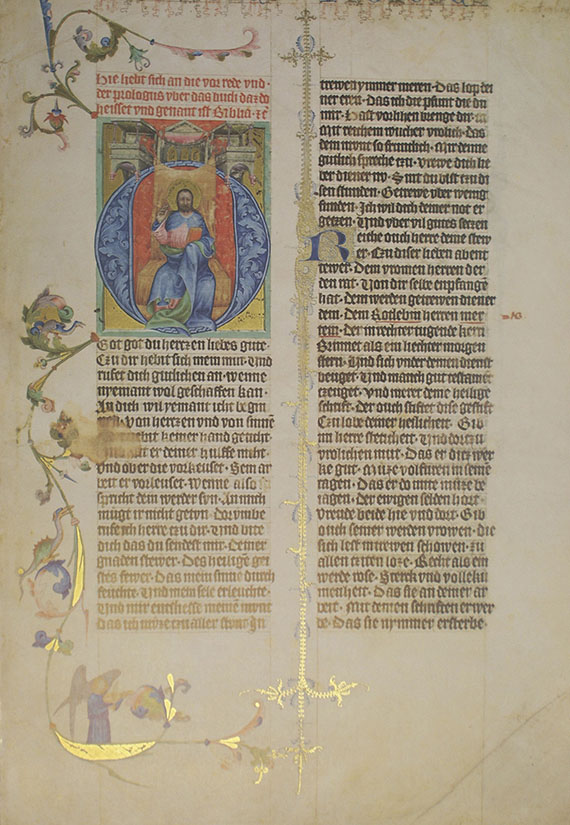 Hie hebt sich an die vor rede vnd
der prologus vber das buch daz do
heisset vnd genant ist Biblia · ze
Got got du hertzen liebes gute ·
Czu dir hebit sich mein mut · Vnd
rufet dich gutlichen an · wenne
nyemant wol geschaffen kan ·
An dich wil yemant icht begin
Von hertzen vnd von sinnē
keiner hand gericht ·
er deiner hulffe nicht ·
Vnd ober die vorkeuset · Sein ar
beit er vorleuset · Wenne also
spricht dein werder svn · An mich
mügt ir nicht getvn · Dorvmbe
rufe ich herre czu dir · Vnd bite
dich das du sendest mir · Deiner
gnaden stewer · Des heiligē gei
stes fewer · Das mein sinne durch
fewchte · Vnd mein sele erleuchte ·
Vnd mir entschliesse meinē mvnt
das ich müze czu aller stvnt · In
trewen nymmer meren · Das lop dei
ner eren · Das ich die pfunt die du
mir · Hast vorlihen brenge dir ·
Mit reichem wucher vrolich · Das
dein mvnt so frunlich · Mit denne
gutlich spreche czu · Vrewe dich lie
ber diener nv · Sint du bist czu di
sen stunden · Getrewe vber wenig
funden · Ich wil dich deiner not er
geczen · Vnd vber vil gutes setzen
Reiche ouch herre deine stew
er · Czu diser lieben abent
tewer · Dem vromen herren der
den rat · Von dir selbe enpfangē
hat · Dem werden getrewen diener
dein · Dem Rotlebin herren mer
tein · Der in rechter tugende kern
Brinnet als ein liechter morgen
stern · Vnd sich vnder deinen dienst
beuget · Vnd manch gut testamēt
czeuget · Vnd meret deine heilige
schrift · Der ouch stiftet dise gestift
Czu lobe deiner heilicheit · Gib
im herre stetikeit · Vnd dorczu
vrolichen mut · Das er dicz wer
ke gut · Müze volfuren in seinē
tagen · Das er do mite müze be
iagen · Der ewigen selden hort ·
Vrende beide hie vnd dort · Gib
ouch seiner werden vrowen · Die
sich lest in trewen schowen · czu
allen czeiten loze · Recht als ein
werde rose · Sterck vnd volleku
menheit · Das sie an deiner ar
beit · Mit deinen schriften er wer
be · Das sie nymmer ersterbe ·